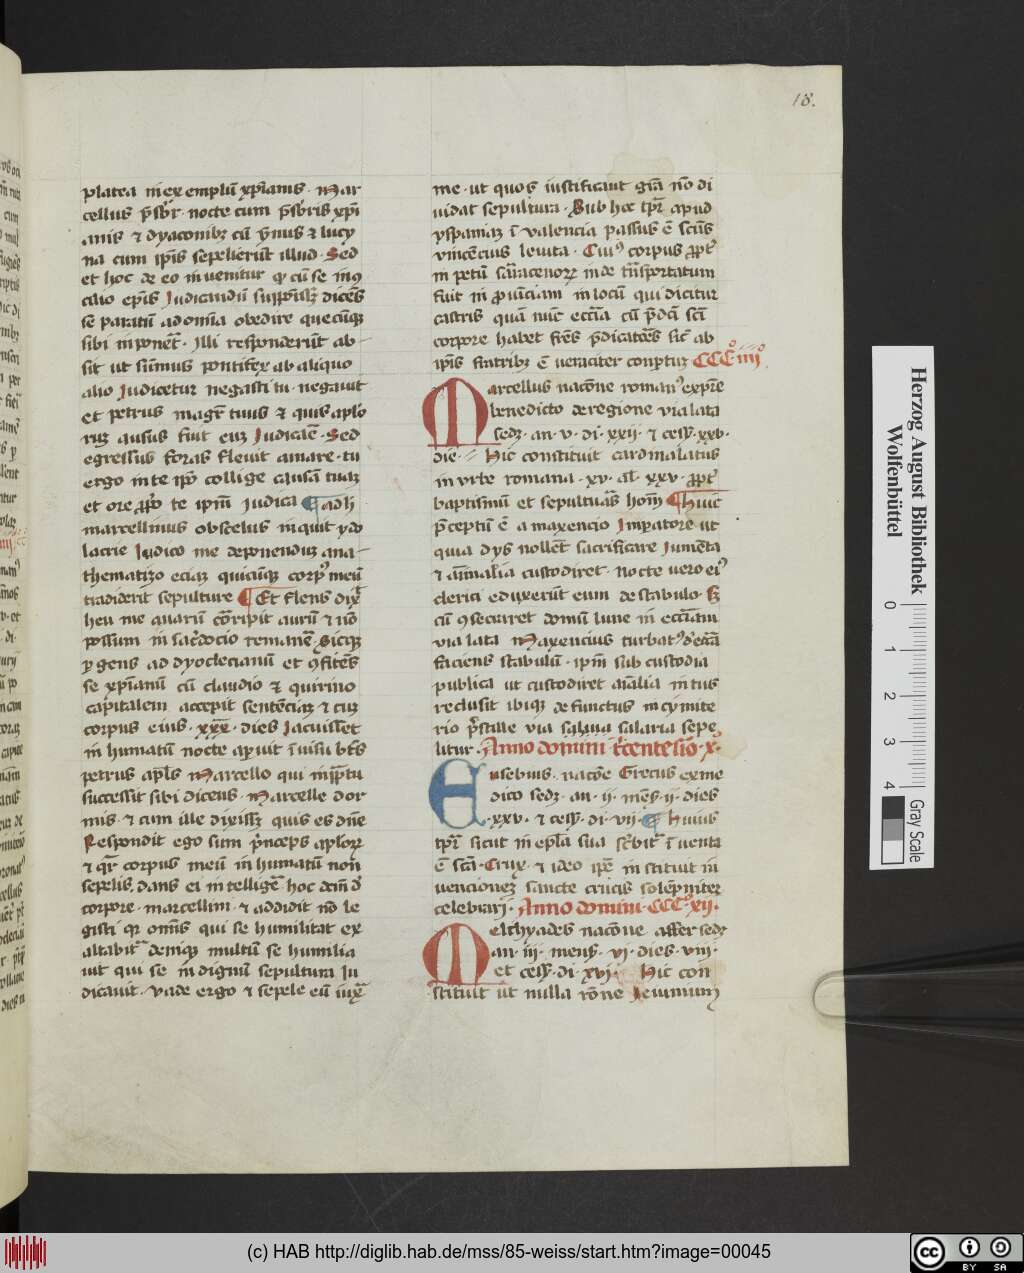 18.
platea in exemplū xp̄ianis · Mar
cellus p̄sbr̄ · nocte cum p̄sbr̄is xp̄i
anis ⁊ dyaconibꝫ cū ymnis ⁊ lucy
na cum ipīs sepelierūt illud · Sed
et hoc de eo inuenitur
Judicandū dicēs
se paratū ad om̄ia obedire quecūqꝫ
sibi inponēt · Illi responderūt ab
sit ut sūmus pontifex ab aliquo
alio Judicetur negasti tu negauit
et petrus magr̄ tuus ⁊ quis aplo
rꝫ ausus fuit eū Judicare · Sed
egressus foras fleuit amare · tu
ergo in te ip̄o collige causā tuā
et ore ꝓprio te ip̄m Judica ¶ ad h̄
marcellinus obscelus inquit ydo
latrie Iudico me deponendū ana
thematizo eciā quicūqꝫ corpꝰ meū
tradiderit sepulture ¶ Et flens dix̄
heu me auarū corripit aurū ⁊ nō
possum in sacerdocio remanere · Sicqꝫ
pergens ad dyoclecianū et ꝯfitēs
se xp̄ianū cū claudio ⁊ quirino
capitalem accepit sentēciā ⁊ cū
corpus eius · xxx · dies Jacuisset
in humatū nocte aperuit ī uisu btūs
petrus apl̄s Marcello qui in p̄ntu
successit sibi dicens · Marcelle dor
mis · ⁊ cum ille dixisset quis es dn̄e
Respondit ego sum p̄nceps aplorꝝ
⁊ qr̄ corpus meū in humatū non̄
sepelis, dans ei intelligere hoc
corpore · marcellini · ⁊ addidit nō le
gisti qꝫ om̄is qui se humiliat ex
altabitr̄ denique multū se humilia
uit qui se indignū sepultura Iu
dicauit · vade ergo ⁊ sepele eū iuxͣ
me · ut quos iustificauit grā nō di
uidat sepultura · Sub hoc tpr̄ apud
yspaniā ī valencia passus ē scūs
vincēcius leuita · Cuiꝰ corpus ꝓpt̄
in petū saracenorꝝ inde trāsportatum
fuit in prouīciam in locū qui dicitur
castris quā nūc ecc̄ia cū p̄dcī scī
corpore habet fr̄es p̄dicatores sic̄ ab
ip̄is fratribꝫ ē ueraciter conptū CCCᵒ iiijᵒ
Marcellus nacōne romanꝰ ex pr̄e
benedicto de regione via lata
sedꝫ · an · v · di · xxij · ⁊ cess̄ · xxv ·
die · Hic constituit cardinalatus
in vrbe romana · xv · al̄ · xxv · ꝓpt̄
baptismū et sepulturas hoīm ¶ Huic
p̄ceptū ē a maxencio Impatore ut
quia dys nollet sacrificare Jumēta
⁊ aīmalia custodiret · nocte uero eiꝰ
clerici eduxerūt eum de stabulo · Et
cū ꝯsecraret domū lune in ecc̄iam
via lata Maxencius turbatꝰ de ecc̄ia
faciens stabulū · ip̄m sub custodia
publica ut custodiret aīalia intus
reclusit ibiqꝫ defunctus in cymite
rio p̄scille via salaria sepe
litur · Anno domini tr̄centesīo x ·
Eusebius · nacōe Grecus ex me
dico sedꝫ · an · ij · mens̄ · ij · dies
· xxv · ⁊ cess̄ · di · vij · ¶ Huius
tpr̄ sicut in epl̄a sua scbitr̄ ī uenta
ē scā · Crux · ⁊ ideo ip̄e instituit in
uencionem sancte crucis solēpniter
celebrari · Anno domini · CCCᵒ xij ·
Melchyades nacōne affer sedꝫ
an · iij · mens̄ · vj · dies · viij ·
et cess̄ · di · xvj · Hic con
stituit ut nulla rōne Jeiunium
Herzog August Bibliothek
Wolfenbüttel
0 1 2 3 4
Gray Scale
(c) HAB http://diglib.hab.de/mss/85-weiss/start.htm?image=00045
cc BY SA